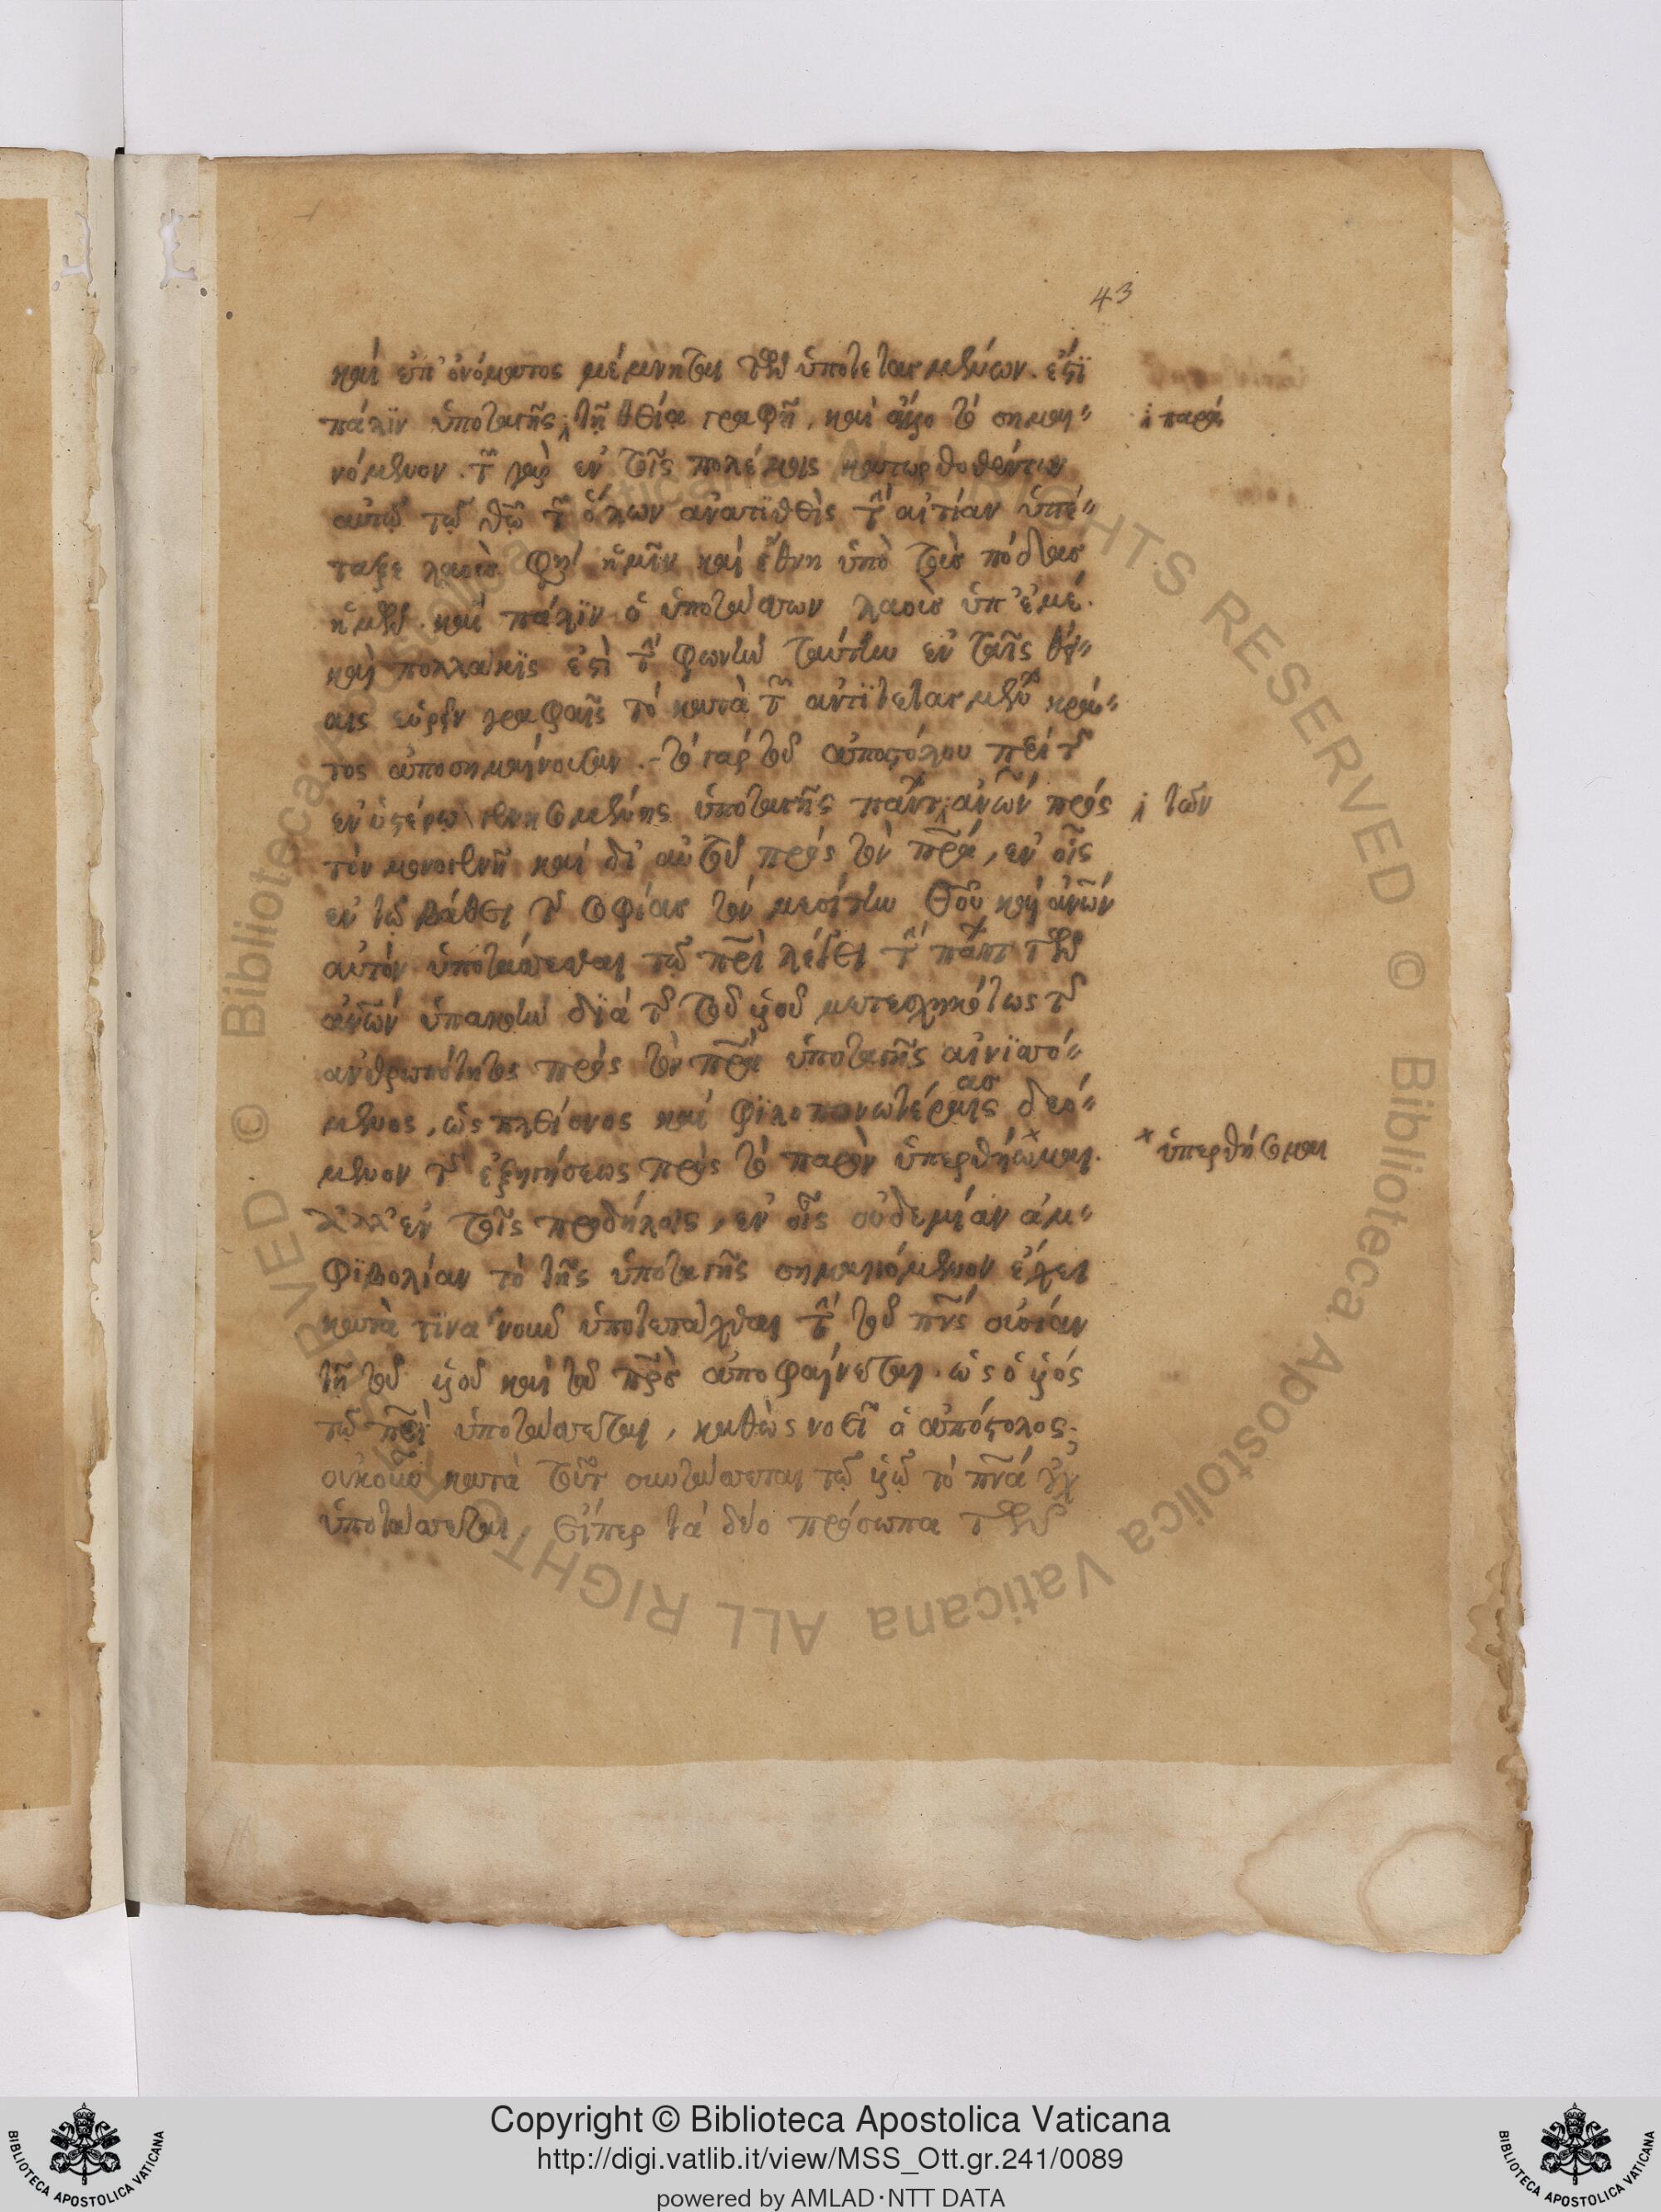 43
καὶ ἐπ' ὀνόματος μέμνηται τῶν ὑποτεταγμένων. ἔστι
πάλιν ὑποταγῆς τῇ θεία γραφῇ, καὶ ἄλλο τὸ σημαι"
παρὰ
νόμενον. τῶν γὰρ ἐν τοῖς πολέμοις κατορθωθέντων
αὐτῷ τῷ θω τῶν ὅλων ἀνατιθεὶς τὴν αἰτίαν ὑπέ"
ταξε λαοὺς φησὶ ἡμῖν καὶ ἔθνη ὑπὸ τοὺς πόδας
ἡμῶν. καὶ πάλιν ὁ ὑποτάσσων λαοὺς ὑπ' ἐμέ.
καὶ πολλάκις ἐστὶ τὴν φωνὴν ταύτην ἐν ταῖς θεί"
αις εὑρεῖν γραφαῖς τὸ κατὰ τῶν ἀντιτεταγμένων κρά"
τος ἀποσημαίνουσαν. τὸ γὰρ τοῦ ἀποστόλου περὶ τῆς
ἐν ὑστέρω γενησομένης ὑποταγῆς πάντων ανων πρὸς
τῶν
τὸν μονογενῆ καὶ δι' αὐτοῦ πρὸς τὸν πρα, ἐν οἷς
ἐν τῷ βάθει τῆς σοφίας τὸν μεσίτην θου καὶ ανων
αὐτὸν ὑποτάσσεσθαι τῷ πρι λέγει τὴν πάντων τῶν
ανων ὑπακοὴν διὰ τῆς τοῦ υἱοῦ μετεσχηκότως τῆς
ἀνθρωπότητος πρὸς τὸν πρα ὑποταγῆς αἰνισσό"
μενος, ὡς πλείονος καὶ φιλοπονωτέραις δεό"
ας
μενον τῆς ἐξηγήσεως πρὸς τὸ παρὸν ὑπερθήσωμαι.
ὑπερθήσομαι
ἀλλ' ἐν τοῖς προδήλοις, ἐν οἷς οὐδεμίαν ἀμ"
φιβολίαν τὸ τῆς ὑποταγῆς σημαινόμενον ἔχει
κατὰ τίνα νοῦν ὑποτετάχθαι τὴν τοῦ πνς οὐσίαν
τῇ τοῦ υἱοῦ καὶ τοῦ πρς ἀποφαίνεται. ὡς ὁ υἱός
τῷ πρι ὑποτάσσεται, καθὼς νοεῖ ὁ ἀπόστολος;
οὐκοῦν κατὰ τοῦτο συντάσσεται τῷ υἱῷ τὸ πνα οὐχ
ὑποτάσσεται, εἴπερ τὰ δύο πρόσωπα τῶν
Copyright © Biblioteca Apostolica Vaticana
http://digi.vatlib.it/view/MSS_Ott.gr.241/0089
powered by AMLAD·NTT DATA
BIBLIOTECA APOSTOLICA VATICANA
BIBLIOTECA APOSTOLICA VATICANA
© Biblioteca Apostolica Vaticana ALL RIGHTS RESERVED © Biblioteca Apostolica Vaticana ALL RIGHTS RESERVED